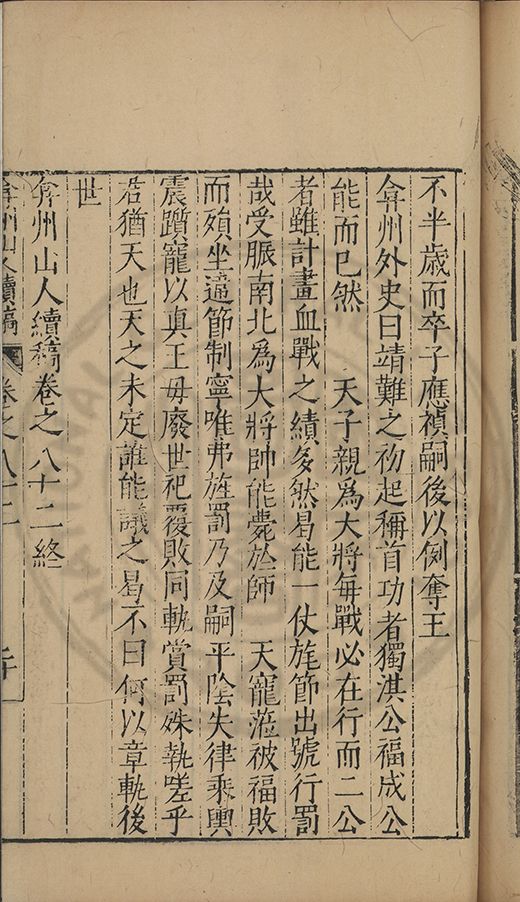 不半歲而卒子應禎嗣後以例奪王
弇州外史曰靖難之初起稱首功者獨淇公福成公
能而已然　天子親爲大將每戰必在行而二公
者雖計畫血戰之績多然曷能一仗旄節出號行罰
哉受脤南北爲大將帥能薨於師　天寵蒞被福敗
而殞坐違節制寧唯弗旌罰乃及嗣平陰失律乘輿
震躓寵以真王毋廢世祀覆敗同軌賞罰殊執嗟乎
君猶天也天之未定誰能議之曷不曰何以章軌後
世
弇州山人續稿卷之八十二終
弇州山人續稿　卷之八十二